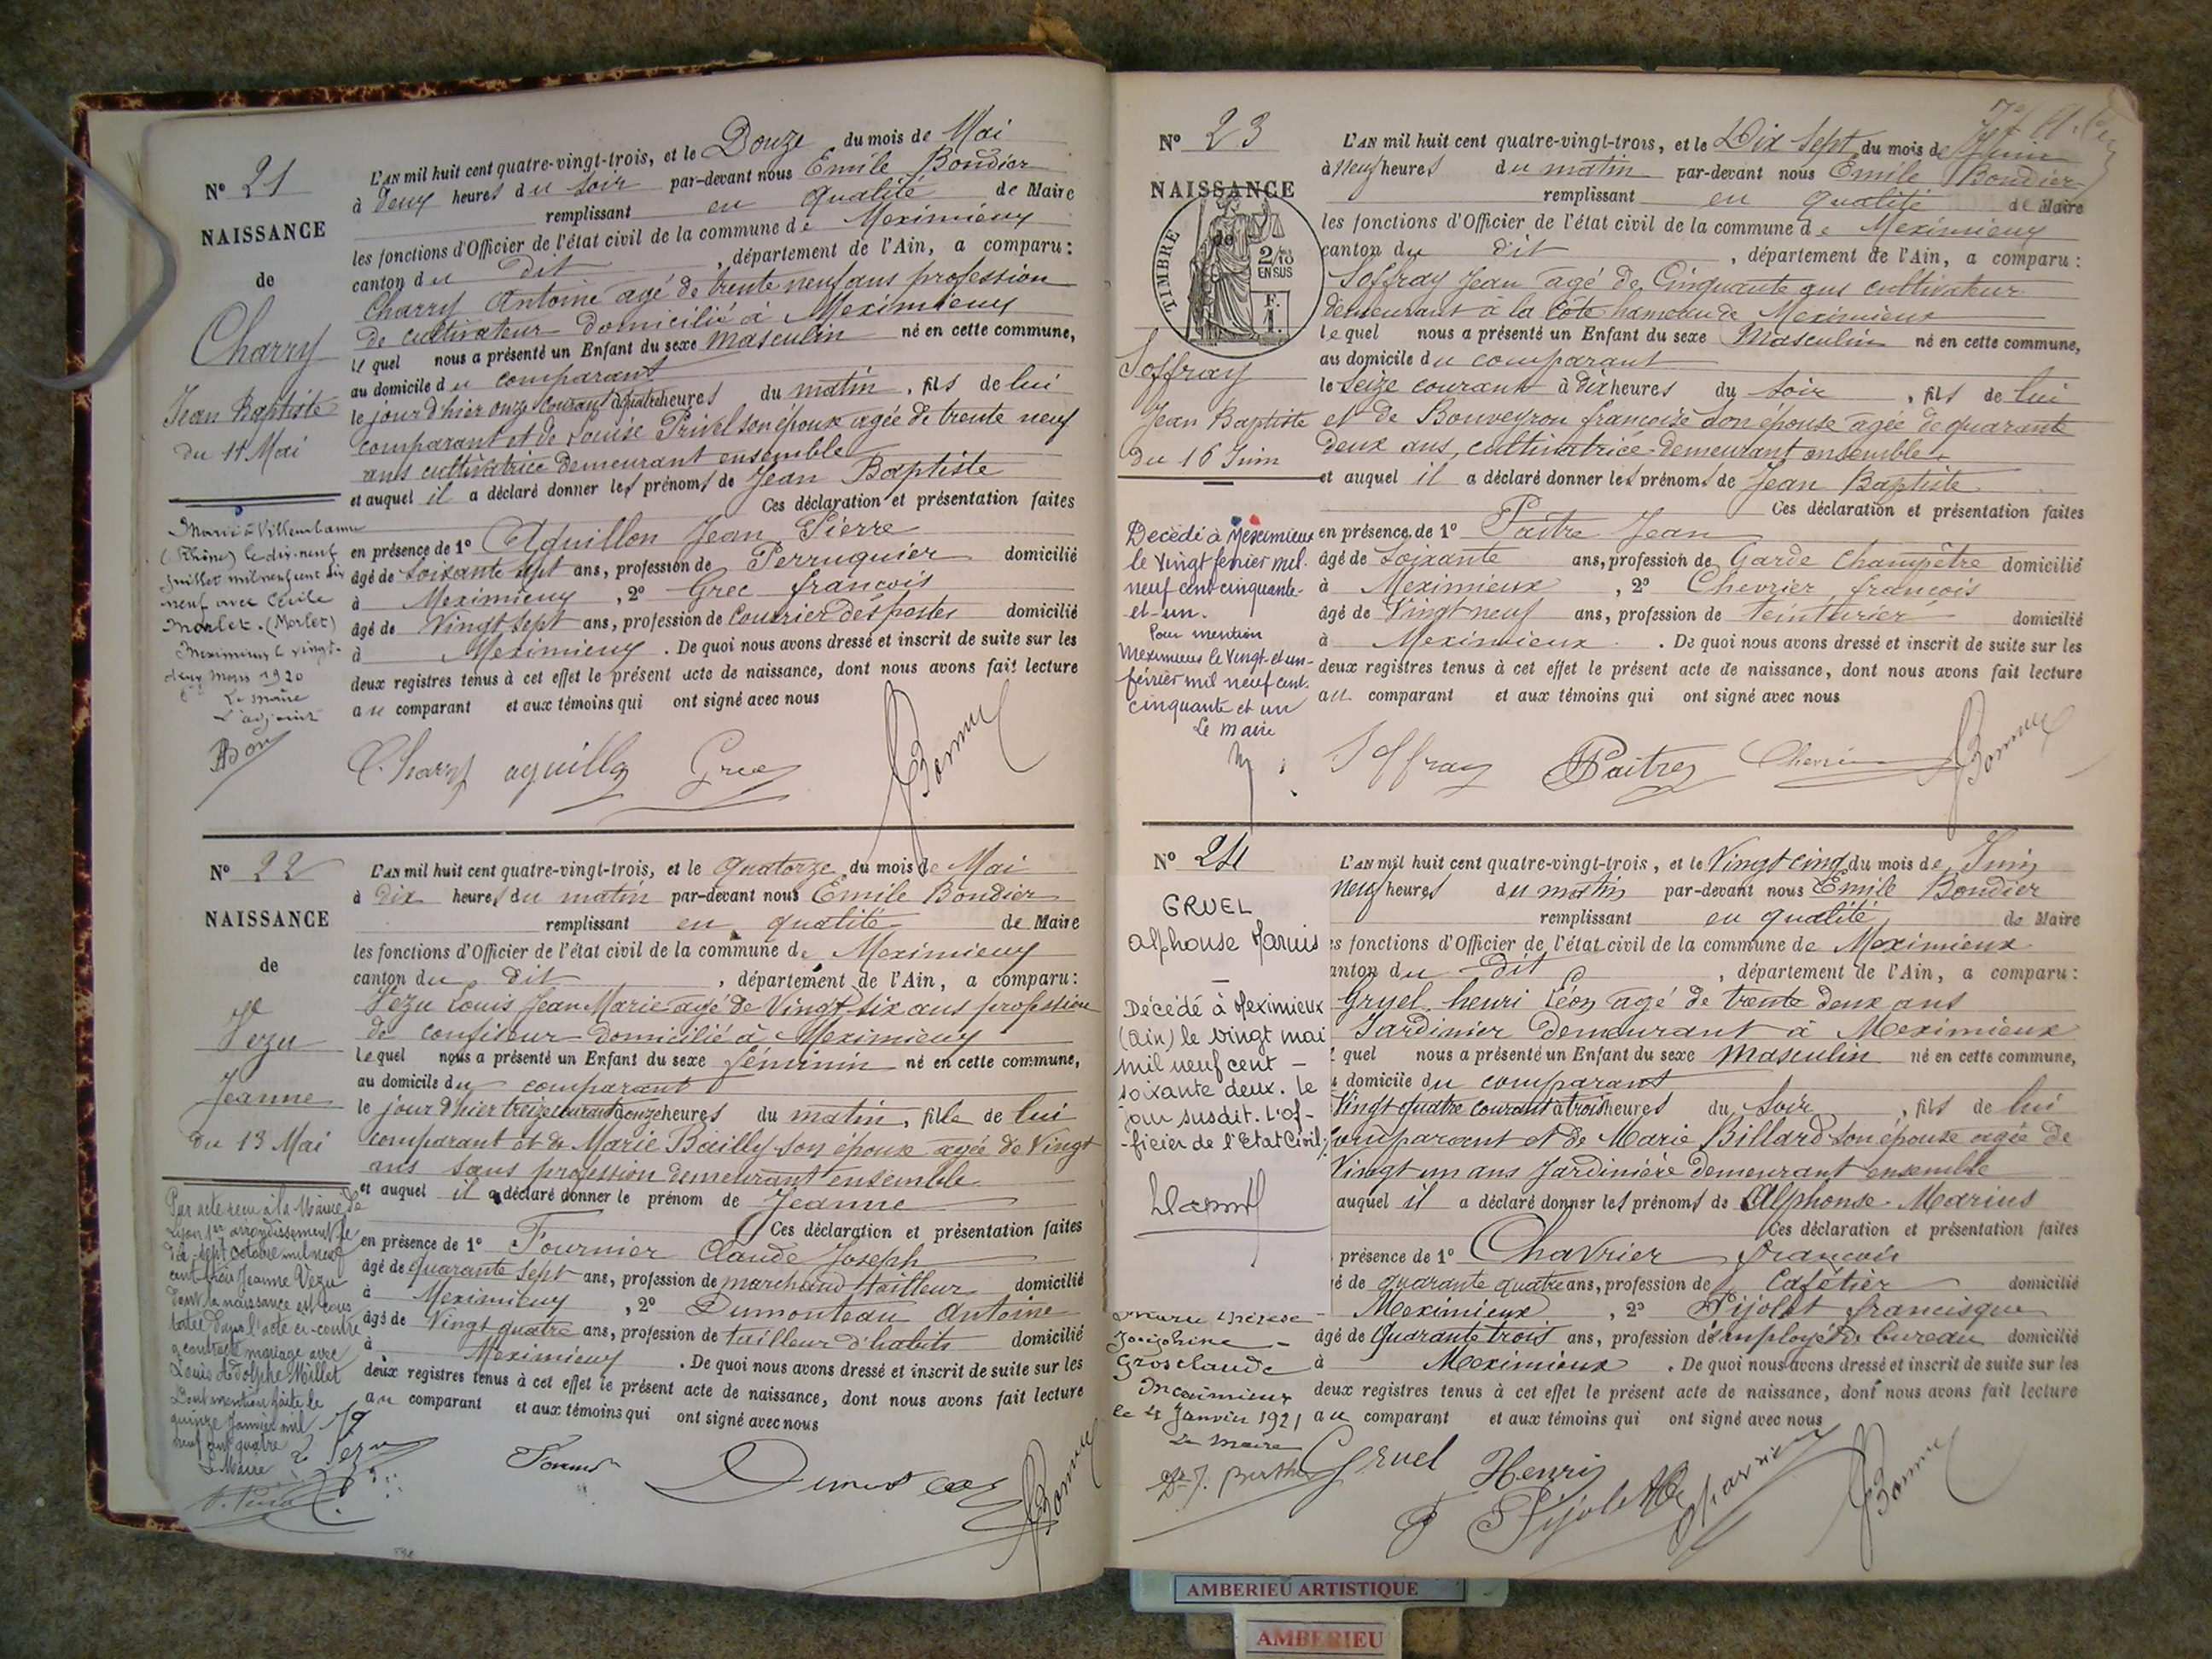 N° 21
NAISSANCE
de
Charry
Jean Baptiste
du 11 Mai
L'AN mil huit cent quatre-vingt-trois, et le Douze du mois de Mai
à deux heures du soir par-devant nous Emile Bondier
remplissant en qualité de Maire
les fonctions d'Officier de l'état civil de la commune de Meximieux
canton du dit , département de l'Ain, a comparu :
Charry Antoine agé de trente neuf ans profession
de cultivateur domicilié à Meximieux
le quel nous a présenté un Enfant du sexe Masculin né en cette commune,
au domicile du comparant
le jour d'hier onze courant à quatre heures du matin , fils de lui
comparant et de Louise Privel son épouse agée de trente neuf
ans cultivatrice demeurant ensemble
et auquel il a déclaré donner les prénoms de Jean Baptiste
Ces déclaration et présentation faites
en présence de 1° Aguillon Jean Pierre
âgé de soixante sept ans, profession de Perruquier domicilié
à Meximieux , 2° Grec francois
âgé de Vingt sept ans, profession de Courrier des postes domicilié
à Meximieux . De quoi nous avons dressé et inscrit de suite sur les
deux registres tenus à cet effet le présent acte de naissance, dont nous avons fait lecture
au comparant et aux témoins qui ont signé avec nous
Marié à Villeurbanne
(Rhône) le dix-neuf
juillet mil neuf cent dix
neuf avec Cécile
Morlet. (Morlet)
Meximieux le vingt-
deux mars 1920
Le maire
L'adjoint
Charry aguillon Grec
N° 22
NAISSANCE
de
Vezu
Jeanne
du 13 Mai
L'AN mil huit cent quatre-vingt-trois, et le quatorze du mois de Mai
à dix heures du matin par-devant nous Emile Bondier
remplissant en qualité de Maire
les fonctions d'Officier de l'état civil de la commune de Meximieux
canton du dit , département de l'Ain, a comparu :
Vezu Louis Jean Marie agé de Vingt six ans profession
de confiseur domicilié à Meximieux
le quel nous a présenté un Enfant du sexe féminin né en cette commune,
au domicile du comparant
le jour d'hier treize courant à onze heures du matin , fille de lui
comparant et de Marie Bailly son épouse agée de Vingt
ans sans profession demeurant ensemble
et auquel il a déclaré donner le prénom de Jeanne
Ces déclaration et présentation faites
en présence de 1° Fournier Claude Joseph
âgé de quarante sept ans, profession de marchand tailleur domicilié
à Meximieux , 2° Dumonteau Antoine
âgé de Vingt quatre ans, profession de tailleur d'habits domicilié
à Meximieux . De quoi nous avons dressé et inscrit de suite sur les
deux registres tenus à cet effet le présent acte de naissance, dont nous avons fait lecture
au comparant et aux témoins qui ont signé avec nous
Par acte reçu à la Mairie de
Lyon 1er arrondissement le
dix-sept octobre mil neuf
cent trois Jeanne Vezu
dont la naissance est cons
tatée dans l'acte ci-contre
a contracté mariage avec
Louis Adolphe Millet
Dont mention faite le
quinze Janvier mil
neuf cent quatre
Le Maire
Vezu
N° 23
NAISSANCE
de
TIMBRE
2/10
EN SUS
F.
1.
Soffray
Jean Baptiste
du 16 Juin
L'AN mil huit cent quatre-vingt-trois, et le Dix sept du mois de Juin
à neuf heures du matin par-devant nous Emile Bondier
remplissant en qualité de Maire
les fonctions d'Officier de l'état civil de la commune de Meximieux
canton du dit , département de l'Ain, a comparu :
Soffray Jean agé de Cinquante ans cultivateur
demeurant à la Côte hameau de Meximieux
le quel nous a présenté un Enfant du sexe Masculin né en cette commune,
au domicile du comparant
le seize courant à dix heures du soir , fils de lui
et de Bouveyron françoise son épouse agée de quarante
deux ans, cultivatrice demeurant ensemble
et auquel il a déclaré donner les prénoms de Jean Baptiste
Ces déclaration et présentation faites
en présence de 1° Paitre Jean
âgé de soixante ans, profession de Garde Champêtre domicilié
à Meximieux , 2° Chevrier françois
âgé de Vingt neuf ans, profession de teinturier domicilié
à Meximieux . De quoi nous avons dressé et inscrit de suite sur les
deux registres tenus à cet effet le présent acte de naissance, dont nous avons fait lecture
au comparant et aux témoins qui ont signé avec nous
Décédé à Meximieux
le vingt février mil-
neuf cent cinquante-
et-un.
Pour mention
Meximieux le vingt-et-un-
février mil neuf cent-
cinquante et un
Le maire
Soffray Paitre
N° 24
GRUEL
Alphonse Marius
Décédé à Meximieux
(Ain) le vingt mai
mil neuf cent -
soixante deux. Le
jour susdit. L'of-
-ficier de l'Etat Civil;
L'AN mil huit cent quatre-vingt-trois, et le Vingt cinq du mois de Juin
neuf heures du matin par-devant nous Emile Bondier
remplissant en qualité de Maire
es fonctions d'Officier de l'état civil de la commune de Meximieux
anton du dit , département de l'Ain, a comparu :
Gruel henri Léon agé de trente deux ans
Jardinier demeurant à Meximieux
quel nous a présenté un Enfant du sexe Masculin né en cette commune,
domicile du comparant
Vingt quatre courant à trois heures du soir , fils de lui
comparant et de Marie Billard son épouse agée de
Vingt un ans Jardinière demeurant ensemble
auquel il a déclaré donner les prénoms de Alphonse Marius
Ces déclaration et présentation faites
présence de 1° Chavrier francois
é de quarante quatre ans, profession de Cafétier domicilié
Meximieux , 2° Pijolet francisque
âgé de Quarante trois ans, profession d'employé de bureau domicilié
à Meximieux . De quoi nous avons dressé et inscrit de suite sur les
deux registres tenus à cet effet le présent acte de naissance, dont nous avons fait lecture
au comparant et aux témoins qui ont signé avec nous
Marie Thérèse
Joséphine -
Grosclaude
Meximieux
le 4 Janvier 1921
Le Maire
Gruel Henri
Pijolet
AMBERIEU ARTISTIQUE
AMBERIEU